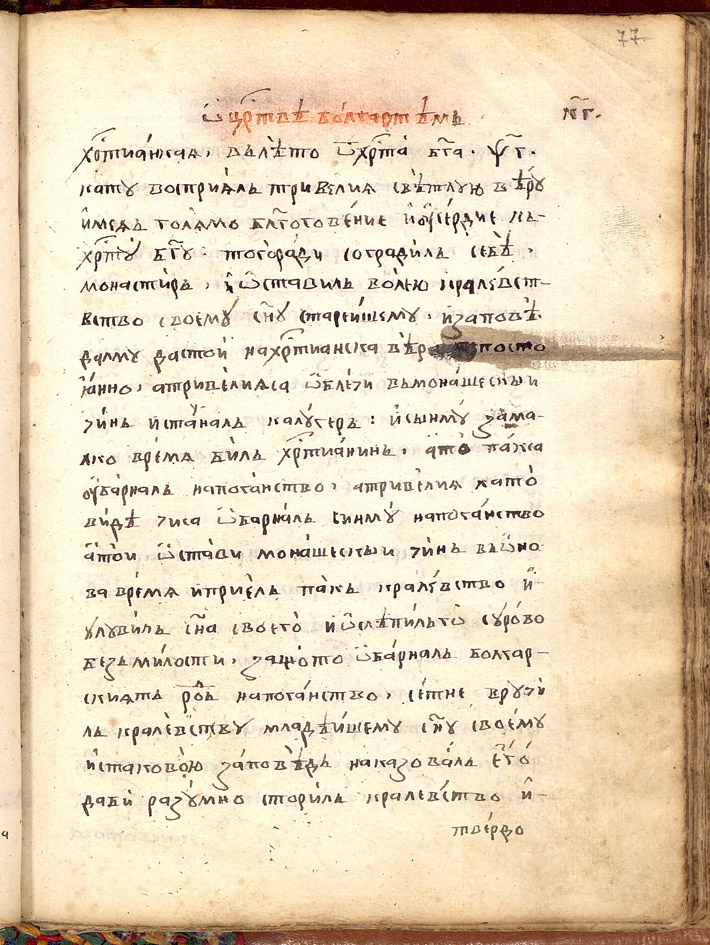 77
ѡ҆ цр҃твѣ болгартѣмь н҃г.
хрⷭ҇тиа́нская, вълѣ́то ѿхрⷭ҇та̀ бг҃а · ѱ҃г ·
кату восприялъ тривелия свѣ́тлую вѣ́ру
и҆мея́ъ голя́мо бл҃гогове́ние и҆оусе́рдие къ
хрⷭ҇ту̀ бг҃у · тогора́ди соградилъ себѣ̀,
монасти́ръ, и҆ѡ҆ста́вилъ во́лею кралѣ́вст-
вство своему̀ сн҃у старе́ишему, и҆заповѣ́-
далму да стои̂ на хрⷭ҇тиа́нска вѣ́ра посто
я́нно, а тривѐлияса ѡ҆блѐчи въ мона́шески и
чи́нъ и҆ста́налъ калу́геръ : и҆сы́нму̀ за́ма-
лко вре́мя би́лъ хрⷭ҇тиа́нинъ, а҆по̀ па́кса
оуба́рналъ напога́нство, атриве́лия като̀
ви́дѣ чиса ѡ҆ба́рналъ си́нму̀ напога́нство
а҆то́и ѡ҆ста́ви мона́шески и чи́нъ въѡ҆но
ва вре́мя и прие́лъ па́къ кралѣ́вство и҆
улуви́лъ сн҃а своего̀ и҆ѡ҆слѣпи́лъго̀ суро́во
безъ ми́лости, защо́то ѡ҆ба́рналъ болгар-
скиятъ ро́дъ на пога́нство, се́тне вручи́
лъ кра́левству младѣ́ишему сн҃у свое́му
и҆ стакова́ю за́повѣдъ наказова́лъ е҆го̀
дабѝ разу́мно сторилъ кралев́ство и҆
тве́рдо